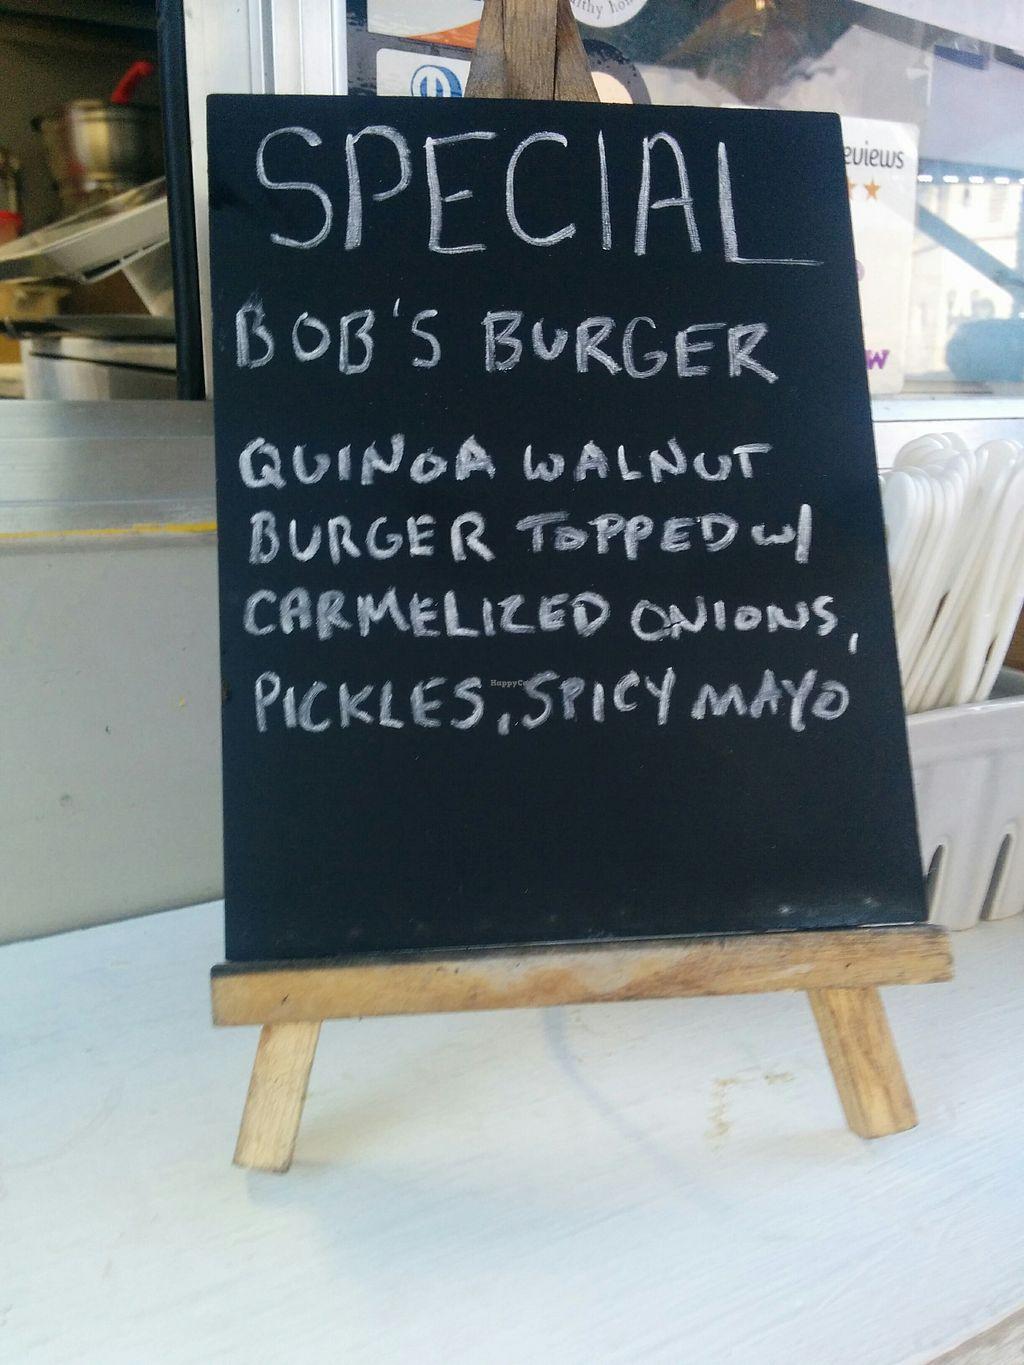 althy hom
SPECIAL
BOB'S BURGER
QUINOA WALNUT
BURGER TOPPED w/
CARMELIZED ONIONS,
PICKLES, SPICY MAYO
eviews
W
HappyC